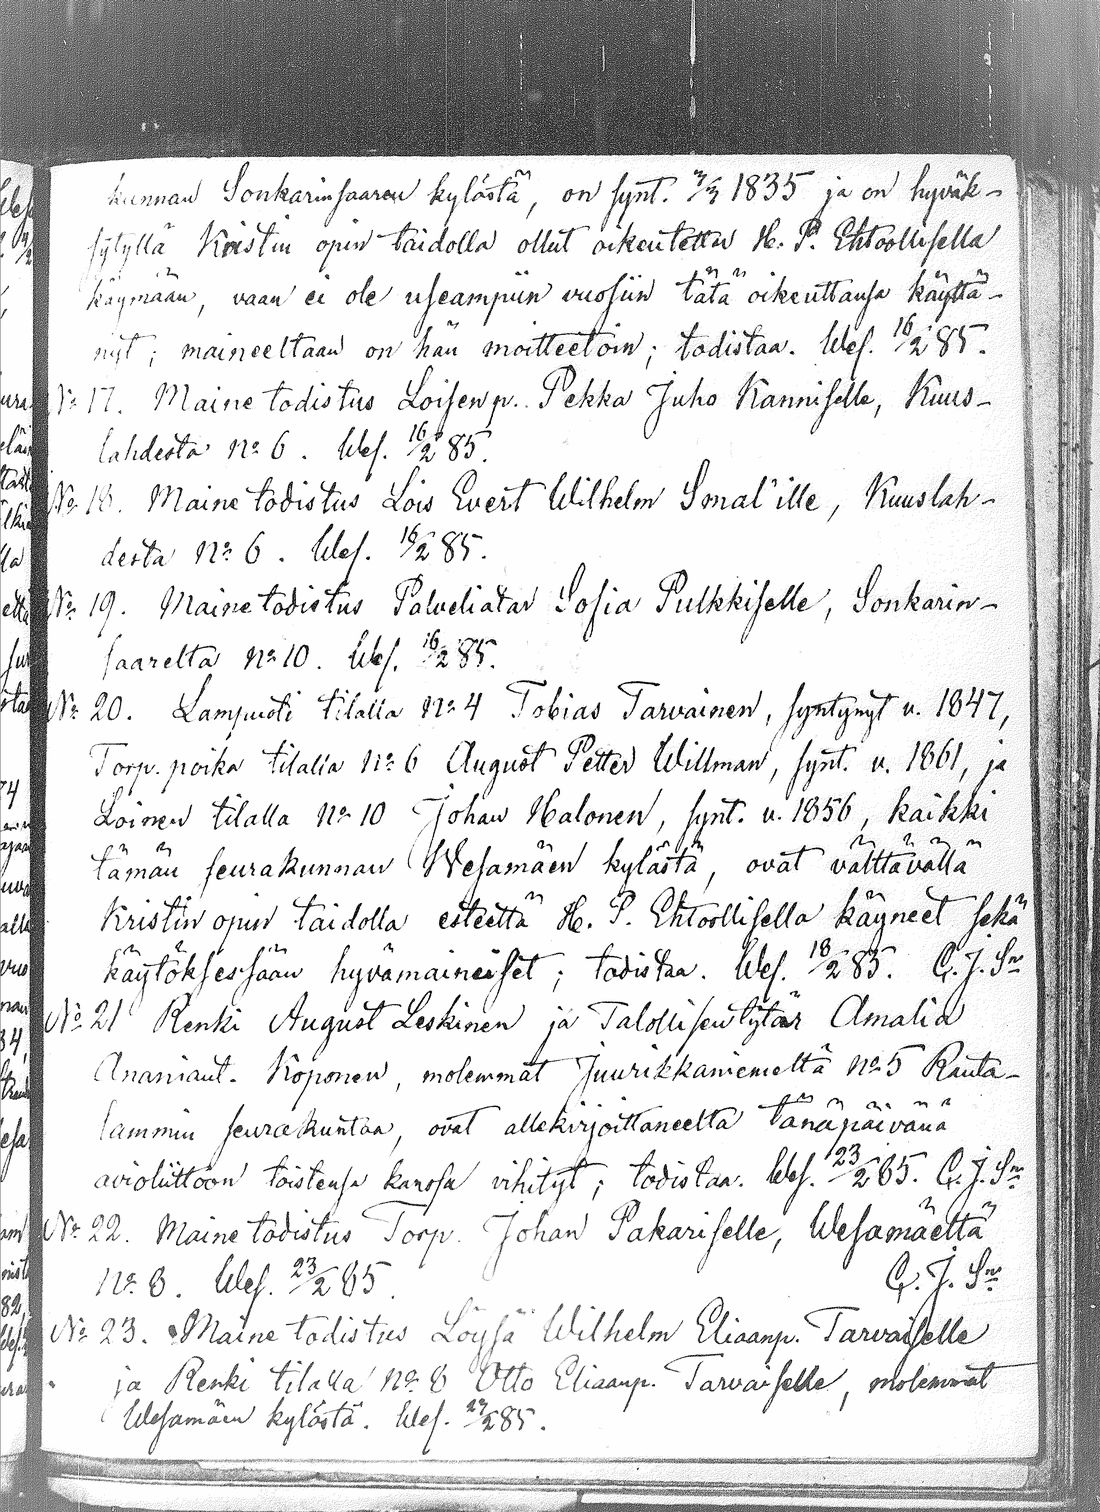 kunnan Sonkarinsaaren kylästä, on synt. 7/3 1835 ja on hyväk-
sytyllä Kristin opin taidolla ollut oikeutettu H. P. Ehtoollisella
käymään, vaan ei ole useampiin vuosiin tätä oikeuttansa käyttä-
nyt; maineeltaan on hän moitteetoin; todistaa. Wes. 16/2 85.
No 17. Maine todistus Loisenp. Pekka Juho Kanniselle, Kuus-
lahdesta No 6. Wes. 16/2 85.
No 18. Maine todistus Lois Evert Wilhelm Smal'ille, Kuuslah-
desta No 6. Wes. 16/2 85.
No 19. Maine todistus Palveliatar Sofia Pulkkiselle, Sonkarin-
saarelta No 10. Wes. 16/2 85.
No 20. Lampuoti tilalla No 4 Tobias Tarvainen, syntynyt v. 1847,
Torp. poika tilalla No 6 August Petter Willman, synt. v. 1861, ja
Loinen tilalla No 10 Johan Halonen, synt. v. 1856, kaikki
tämän seurakunnan Wesamäen kylästä, ovat välttävällä
Kristin opin taidolla esteettä H. P. Ehtoollisella käyneet sekä
käytöksessään hyvämaineiset; todistaa. Wes. 18/2 85. C. J. Sn
No 21 Renki August Leskinen ja Talollisentytär Amalia
Ananiant. Koponen, molemmat Juurikkaniemeltä No 5 Rauta-
lammin seurakuntaa, ovat allekirjoittaneelta tänäpäivänä
avioliittoon toistensa kanssa vihityt; todistaa. Wes. 23/2 85. C. J. Sn
No 22. Maine todistus Torp. Johan Pakariselle, Wesamäeltä
No 8. Wes. 23/2 85 C. J. Sn
No 23. Maine todistus Löysä Wilhelm Eliaanp. Tarvaiselle
ja Renki tilalla No 8 Otto Eliaanp. Tarvaiselle, molemmat
Wesamäen kylästä. Wes. 27/2 85.